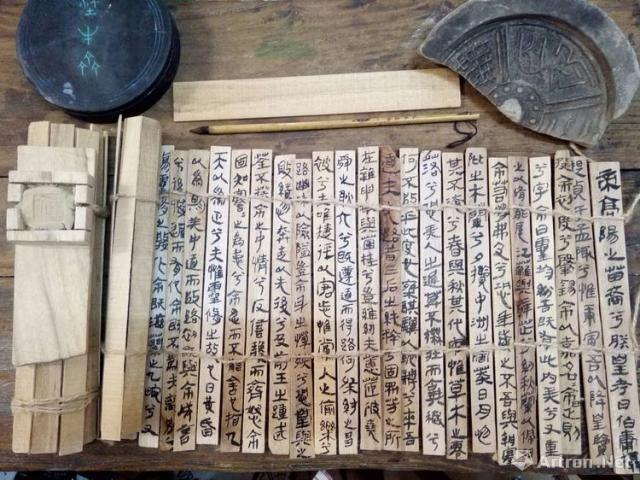 帝高陽之苗裔兮朕皇考曰伯庸
攝提貞于孟陬兮惟庚寅吾以降皇覽
揆余初度兮肇錫余以嘉名名余曰正則
兮字余曰靈均紛吾既有此內美兮又重
之以脩能扈江離與辟芷兮紉秋蘭以為佩
汩余若將不及兮恐年歲之不吾與朝搴
阰之木蘭兮夕攬中洲之宿莽日月忽
其不淹兮春與秋其代序惟草木之零
落兮恐美人之遲暮不撫壯而棄穢兮
何不改此度也乘騏驥以馳騁兮來吾
道夫先路昔三后之純粹兮固眾芳之所
在雜申椒與菌桂兮豈維紉夫蕙茝彼堯
舜之耿介兮既遵道而得路何桀紂之昌
披兮夫唯捷徑以窘步惟黨人之偷樂兮
路幽昧以險隘豈余身之憚殃兮恐皇輿之
敗績忽奔走以先後兮及前王之踵武
荃不揆余之中情兮反信讒而齌怒余
固知謇謇之為患兮忍而不能舍也指九
天以為正兮夫惟靈脩之故也曰黃昏
以為期兮羌中道而改路初既與余成言
兮後悔遁而有他余既不難夫離別兮
傷靈脩之數化余既滋蘭之九畹兮又
Artron.Net